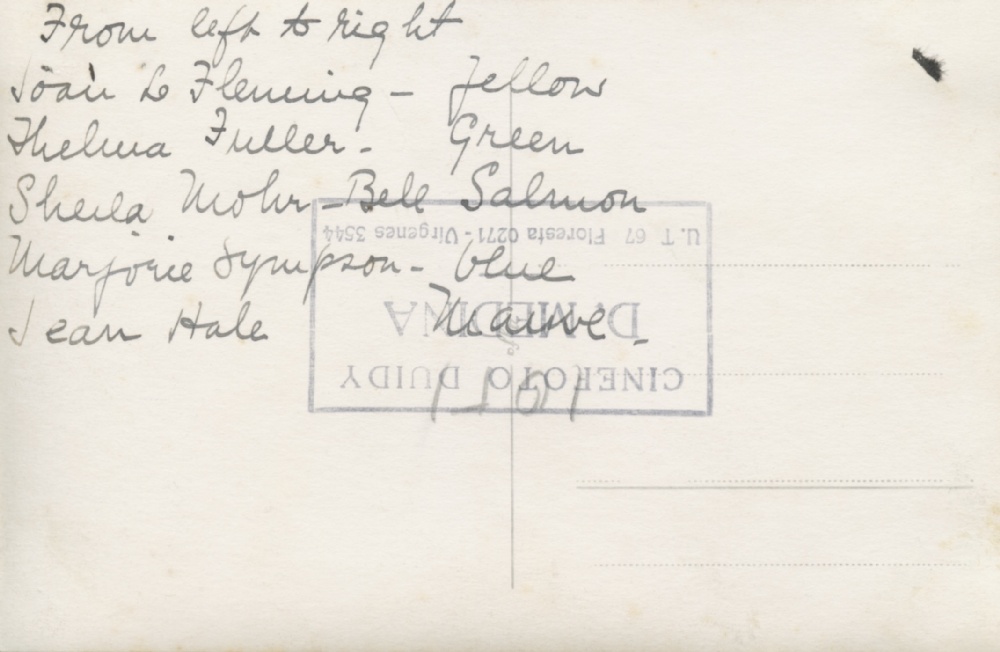 From left to right
Joan Le Fleming - Yellow
Thelma Fuller - Green
Sheila Mohr-Bell Salmon
Marjorie Sympson - blue
Jean Hale Mauve.
CINEFOTO DUIDY
D. MEDINA
U.T. 67 Floresta 0271 - Virgenes 3544